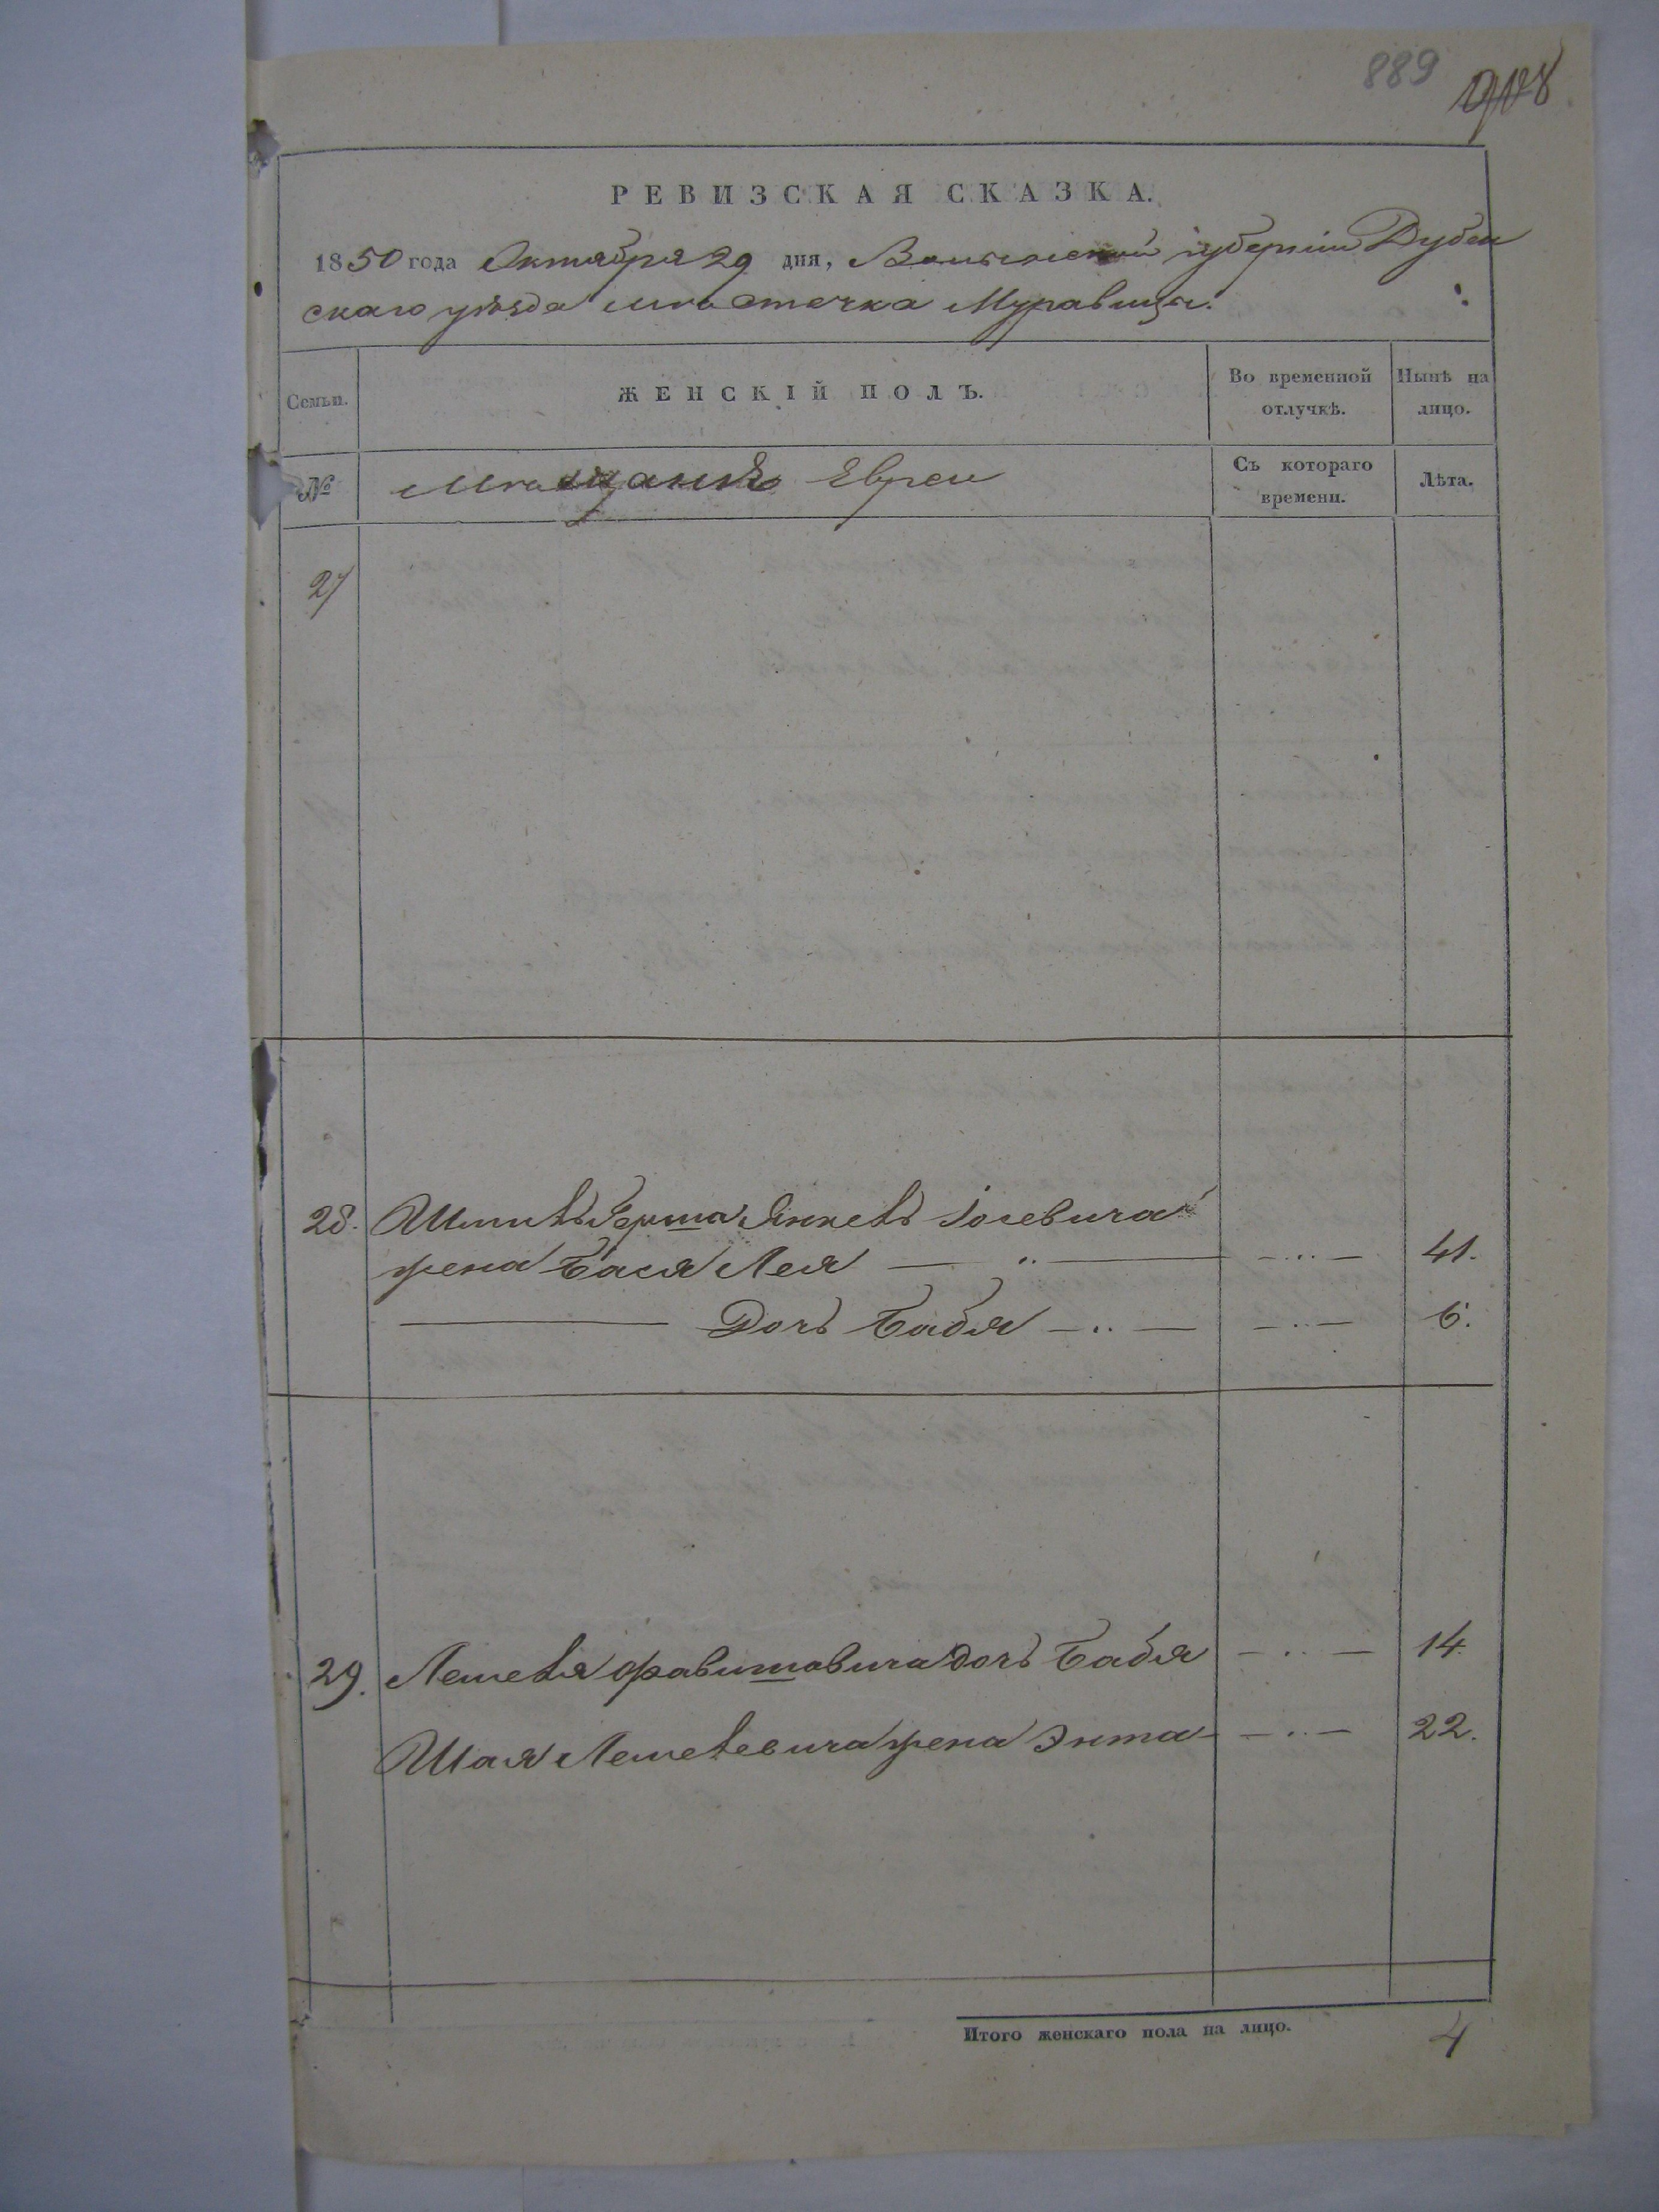 889
РЕВИЗСКАЯ СКАЗКА.
1850 года Октября 29 дня, Волынской губернiи Дубен
скаго уѣзда мѣстечка Муравицы.
Семьи.
ЖЕНСКІЙ ПОЛЪ.
Во временной отлучкѣ.
Нынѣ на лицо.
№
Мѣщанѣ Евреи
Съ котораго времени.
Лѣта.
27
28. Герша Янкель Іосевича
жена Бася Лея — " — — " — 41.
— Дочь Бабя — " — — " — 6.
29. дочь Бабя — " — 14
Шая жена Энта — — " — 22.
Итого женскаго пола на лицо. 4